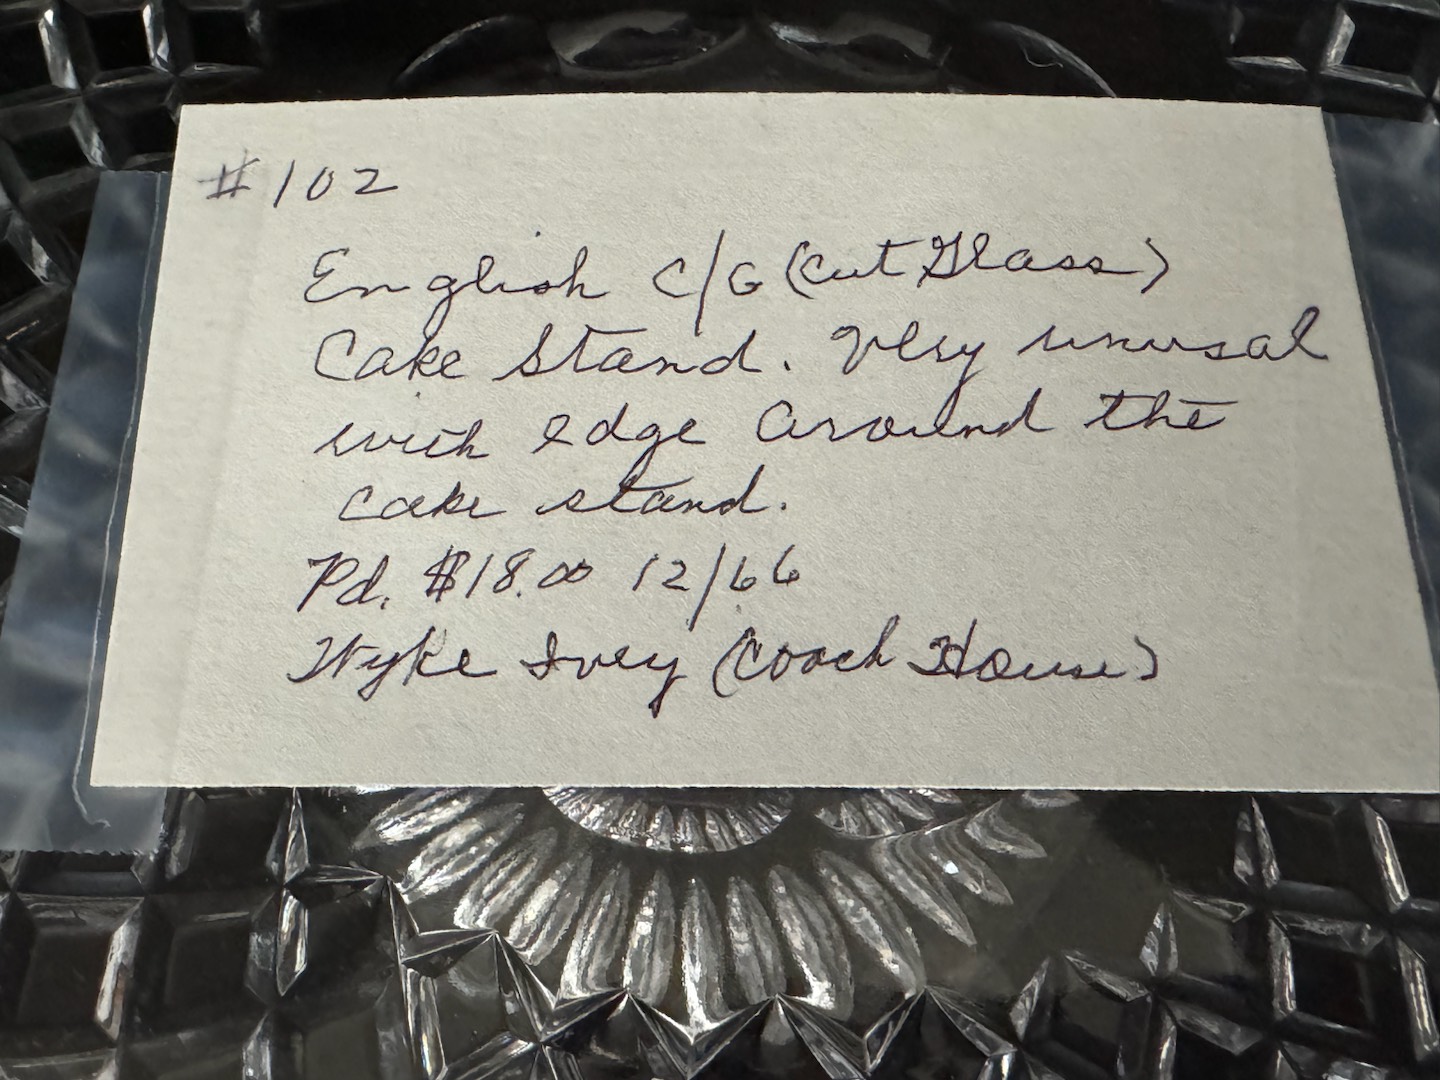 #102
English C/G (Cut Glass)
Cake Stand. Very unusal
with edge around the
cake stand.
Pd. $18.00 12/66
Wyke Ivey (Coach House)